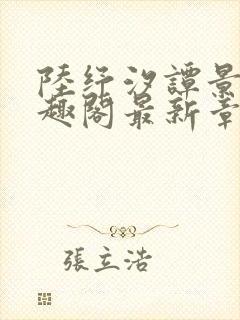 陸紓汐譚景
趣閣最新章
張立浩